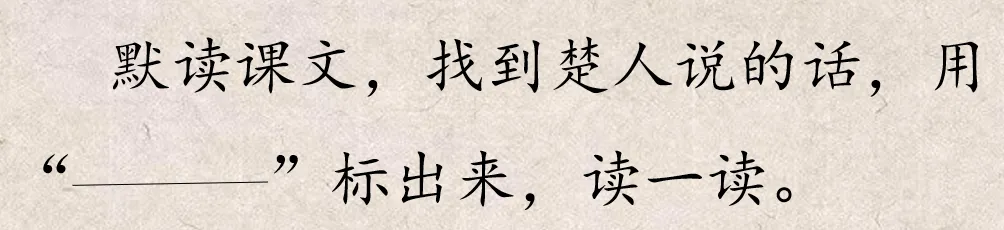 默读课文，找到楚人说的话，用
“________”标出来，读一读。